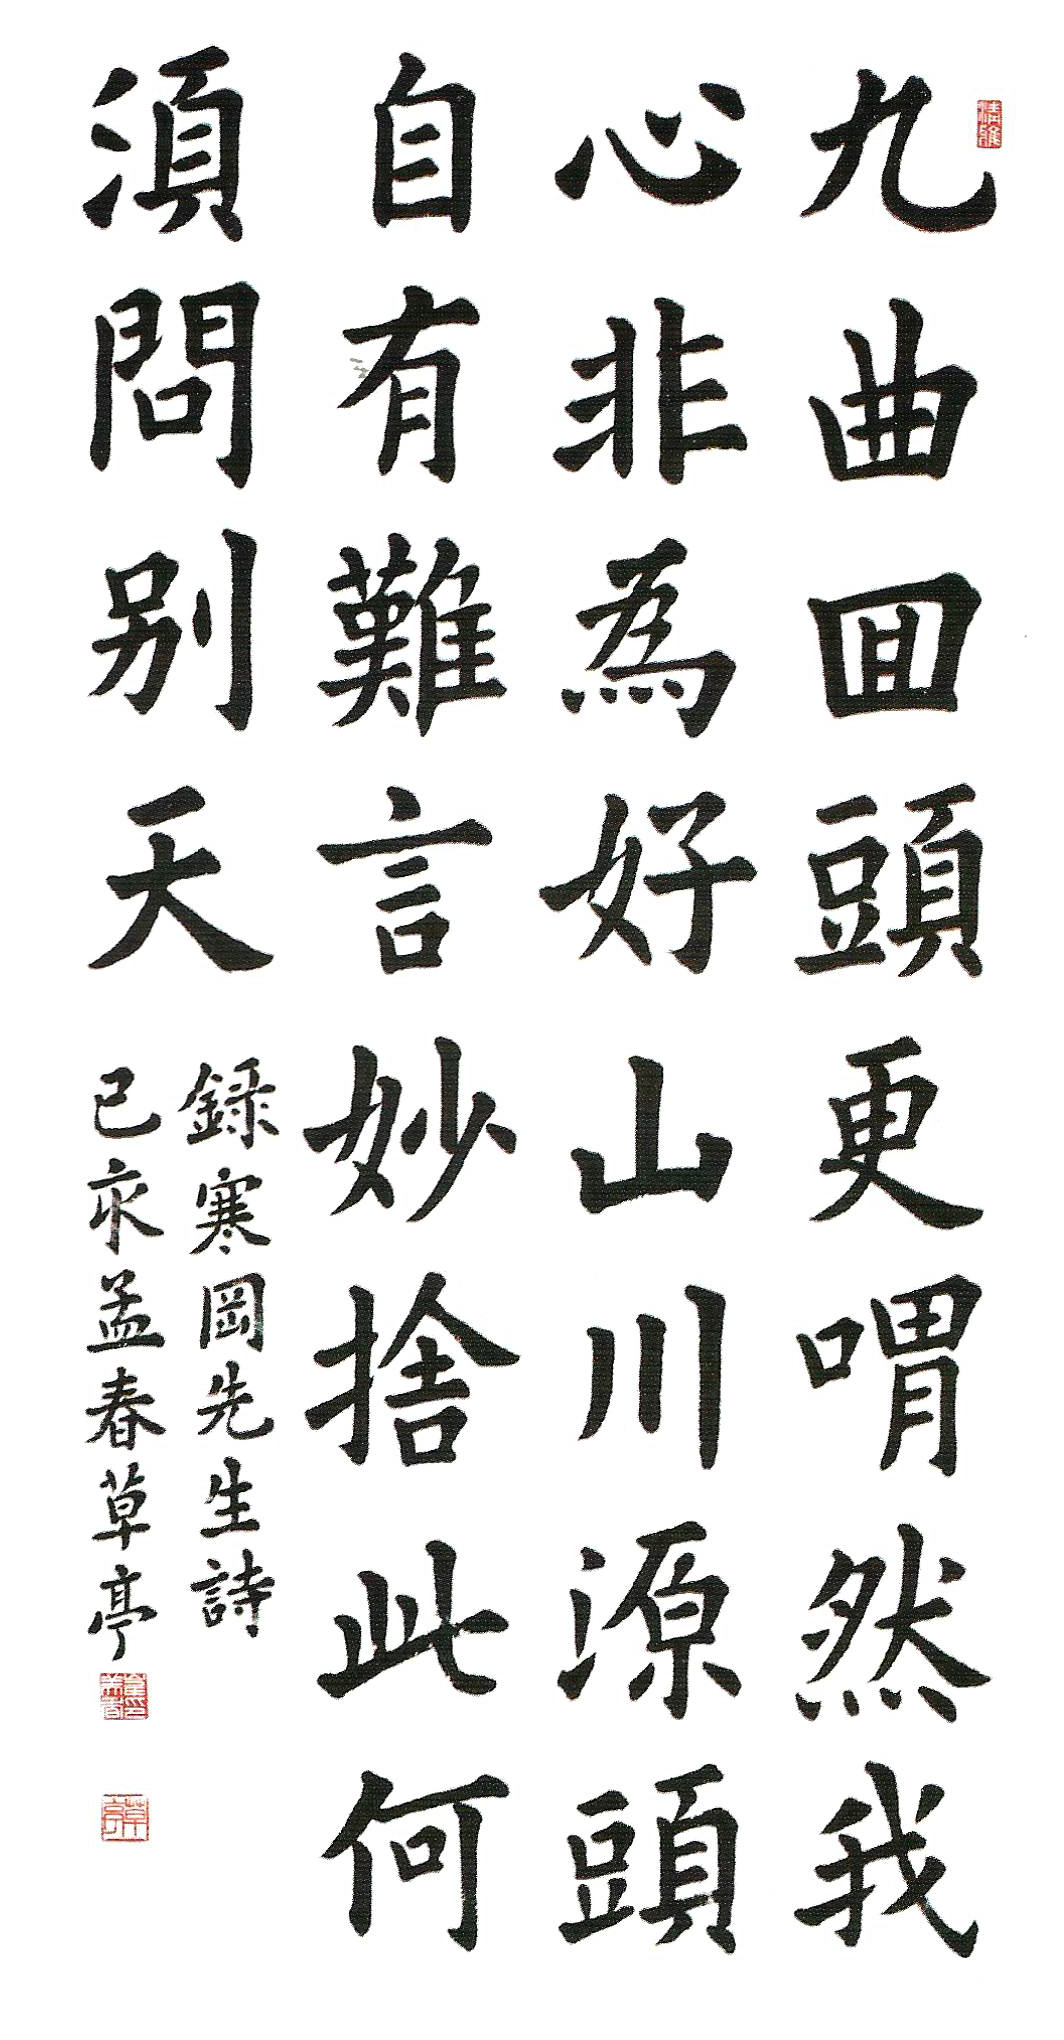 九曲囬頭更喟然我
心非為好山川源頭
自有難言妙捨此何
須問别天
錄寒岡先生詩
己亥孟春草亭